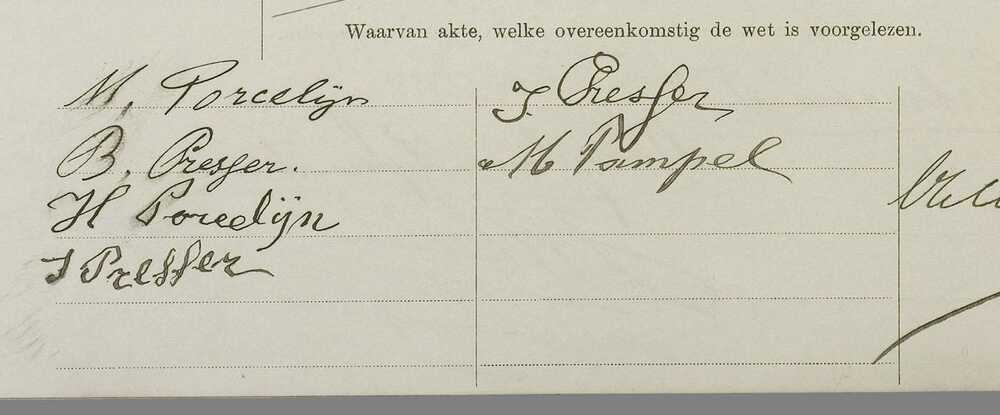 Waarvan akte, welke overeenkomstig de wet is voorgelezen.
M. Porcelijn
B. Presser.
H Porcelijn
I Presser
J. Presser
M Pampel